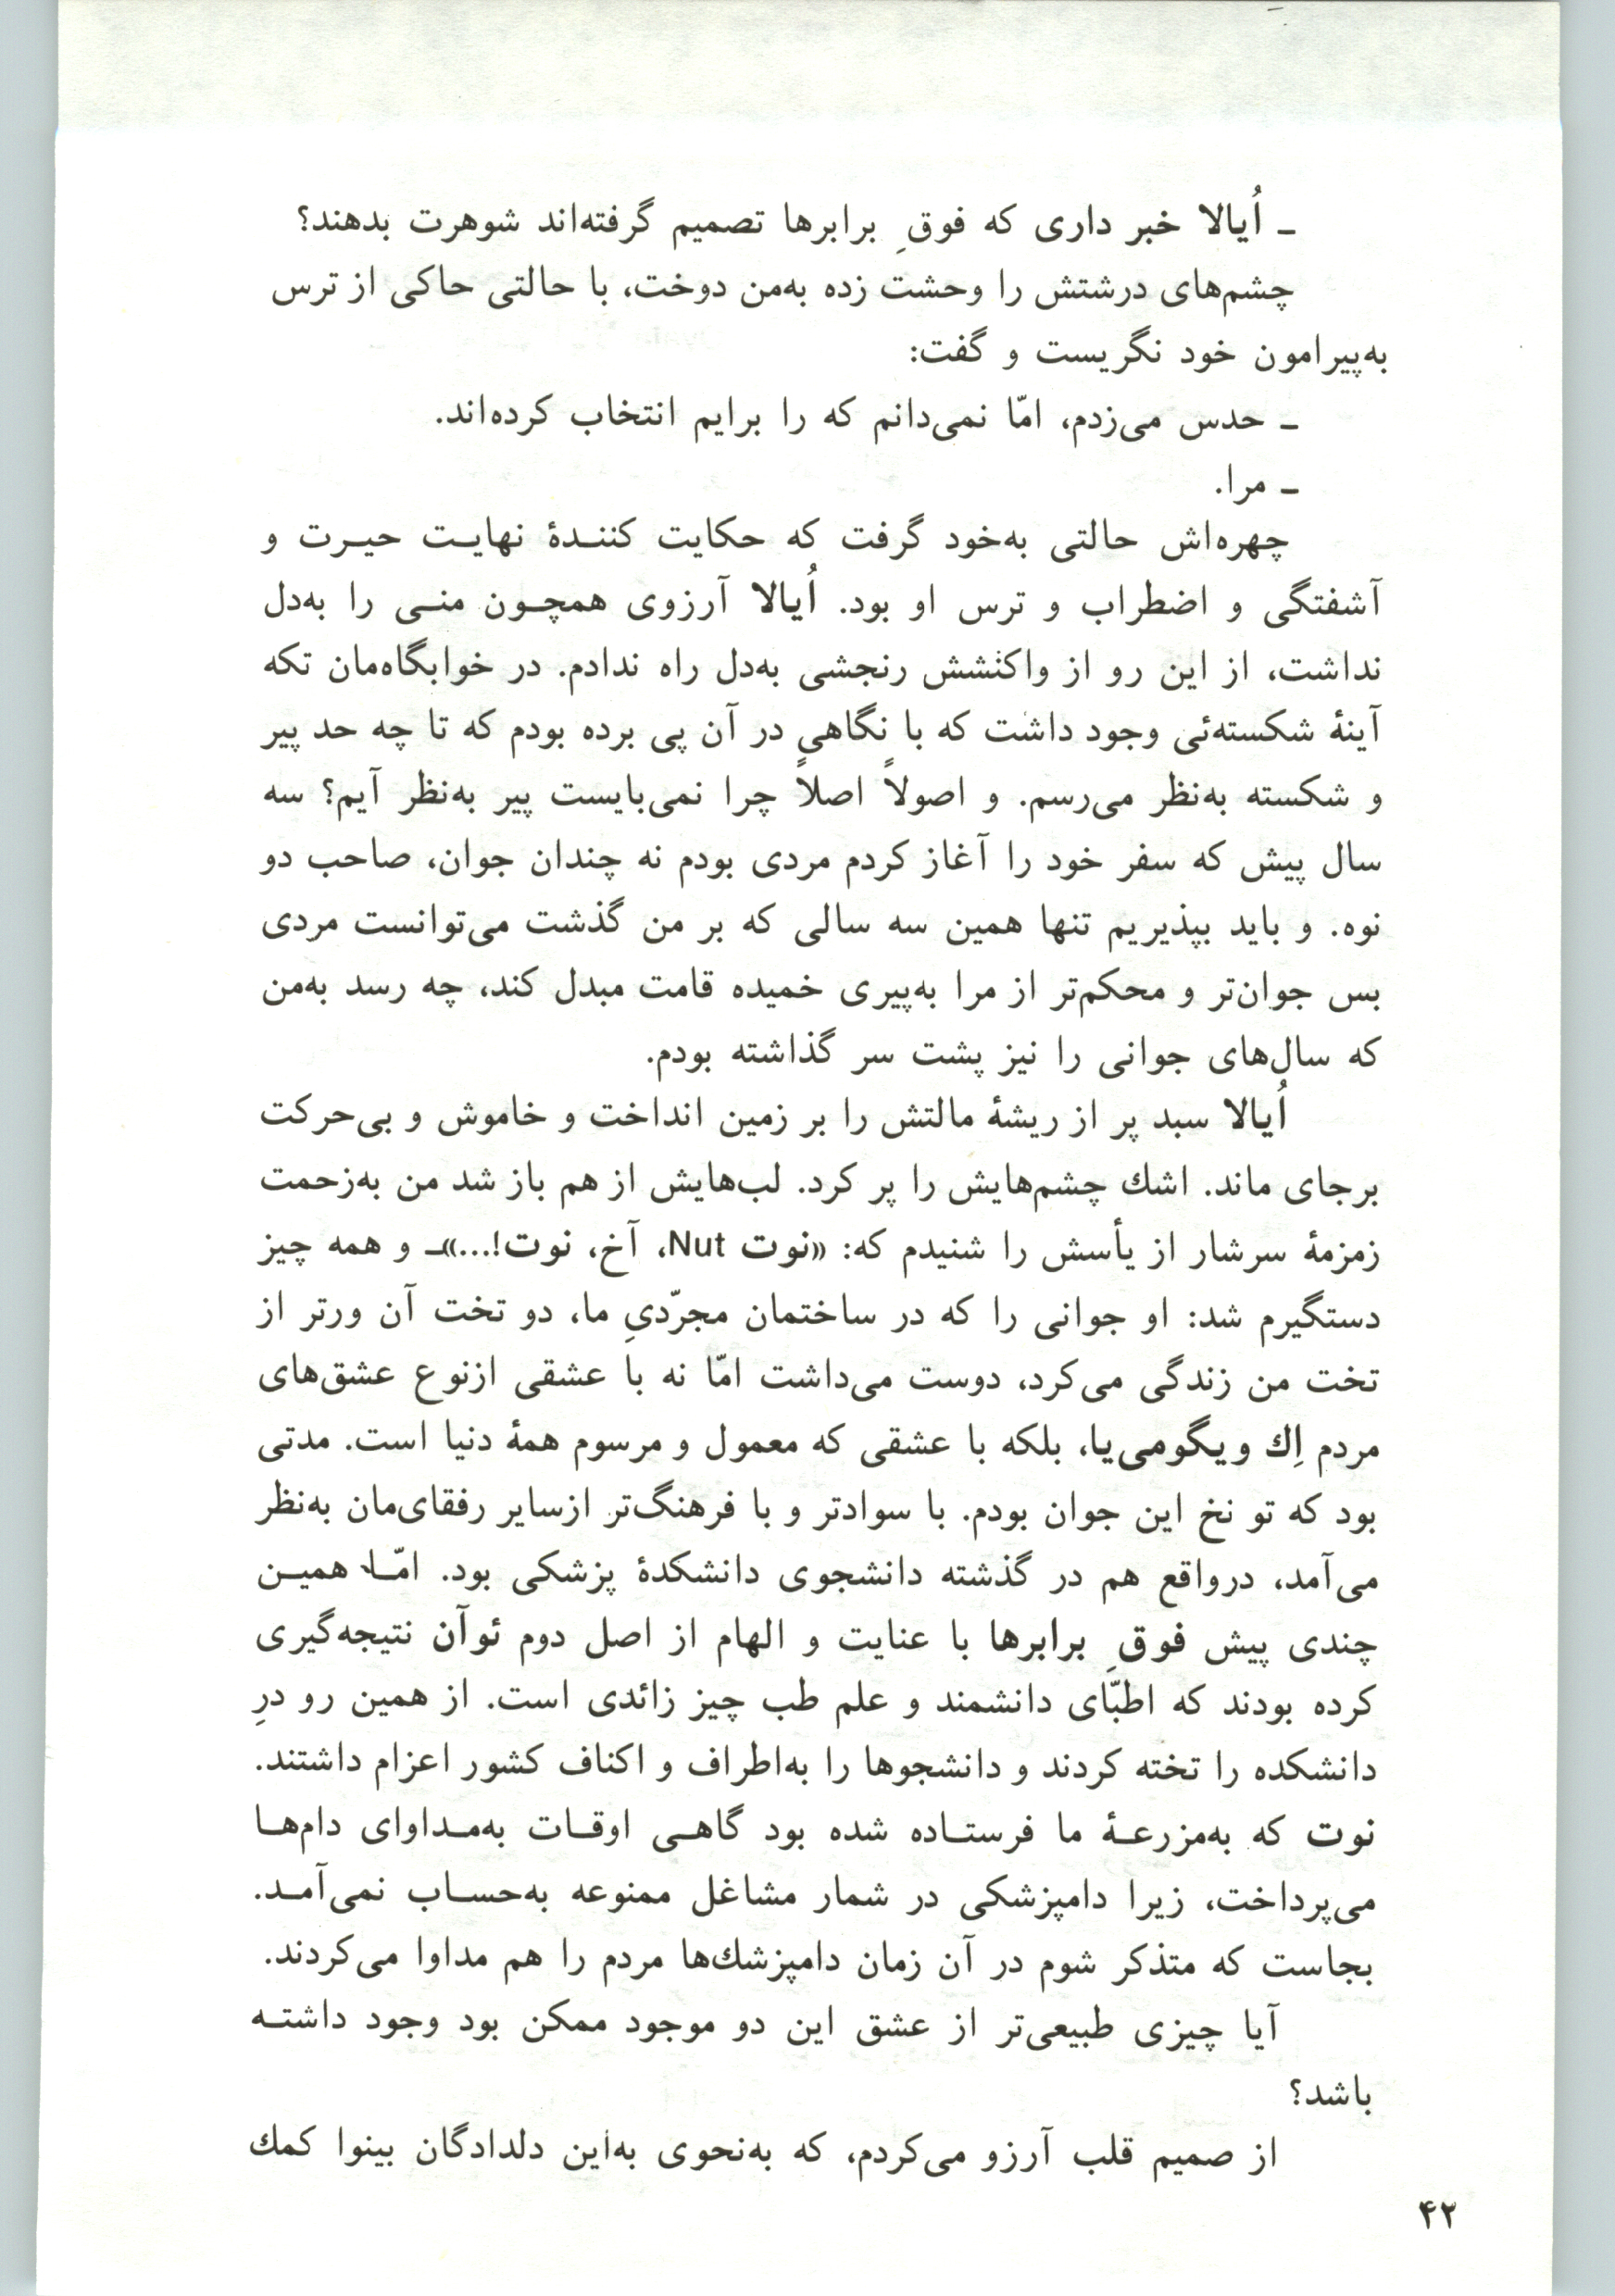 ـ اُیالا خبر داری که فوقِ برابرها تصمیم گرفته‌اند شوهرت بدهند؟
چشم‌های درشتش را وحشت زده به‌من دوخت، با حالتی حاکی از ترس
به‌پیرامون خود نگریست و گفت:
ـ حدس می‌زدم، امّا نمی‌دانم که را برایم انتخاب کرده‌اند.
ـ مرا.
چهره‌اش حالتی به‌خود گرفت که حکایت کننـدهٔ نهایـت حیـرت و
آشفتگی و اضطراب و ترس او بود. اُیالا آرزوی همچـون منـی را به‌دل
نداشت، از این رو از واکنشش رنجشی به‌دل راه ندادم. در خوابگاه‌مان تکه
آینهٔ شکسته‌ئی وجود داشت که با نگاهی در آن پی برده بودم که تا چه حد پیر
و شکسته به‌نظر می‌رسم. و اصولاً اصلاً چرا نمی‌بایست پیر به‌نظر آیم؟ سه
سال پیش که سفر خود را آغاز کردم مردی بودم نه چندان جوان، صاحب دو
نوه. و باید بپذیریم تنها همین سه سالی که بر من گذشت می‌توانست مردی
بس جوان‌تر و محکم‌تر از مرا به‌پیری خمیده قامت مبدل کند، چه رسد به‌من
که سال‌های جوانی را نیز پشت سر گذاشته بودم.
اُیالا سبد پر از ریشهٔ مالتش را بر زمین انداخت و خاموش و بی‌حرکت
برجای ماند. اشك چشم‌هایش را پر کرد. لب‌هایش از هم باز شد من به‌زحمت
زمزمهٔ سرشار از یأسش را شنیدم که: «نوت Nut، آخ، نوت!...»ـ و همه چیز
دستگیرم شد: او جوانی را که در ساختمان مجرّدیِ ما، دو تخت آن ورتر از
تخت من زندگی می‌کرد، دوست می‌داشت امّا نه با عشقی ازنوع عشق‌های
مردم اِك ویگومی‌یا، بلکه با عشقی که معمول و مرسوم همهٔ دنیا است. مدتی
بود که تو نخ این جوان بودم. با سوادتر و با فرهنگ‌تر ازسایر رفقای‌مان به‌نظر
می‌آمد، درواقع هم در گذشته دانشجوی دانشکدهٔ پزشکی بود. امّـا همیـن
چندی پیش فوقِ برابرها با عنایت و الهام از اصل دوم ئوآن نتیجه‌گیری
کرده بودند که اطبّای دانشمند و علم طب چیز زائدی است. از همین رو درِ
دانشکده را تخته کردند و دانشجوها را به‌اطراف و اکناف کشور اعزام داشتند.
نوت که به‌مزرعـهٔ ما فرستـاده شده بود گاهـی اوقـات به‌مـداوای دام‌هـا
می‌پرداخت، زیرا دامپزشکی در شمار مشاغل ممنوعه به‌حسـاب نمی‌آمـد.
بجاست که متذکر شوم در آن زمان دامپزشك‌ها مردم را هم مداوا می‌کردند.
آیا چیزی طبیعی‌تر از عشق این دو موجود ممکن بود وجود داشتـه
باشد؟
از صمیم قلب آرزو می‌کردم، که به‌نحوی به‌این دلدادگان بینوا کمك
۴۲